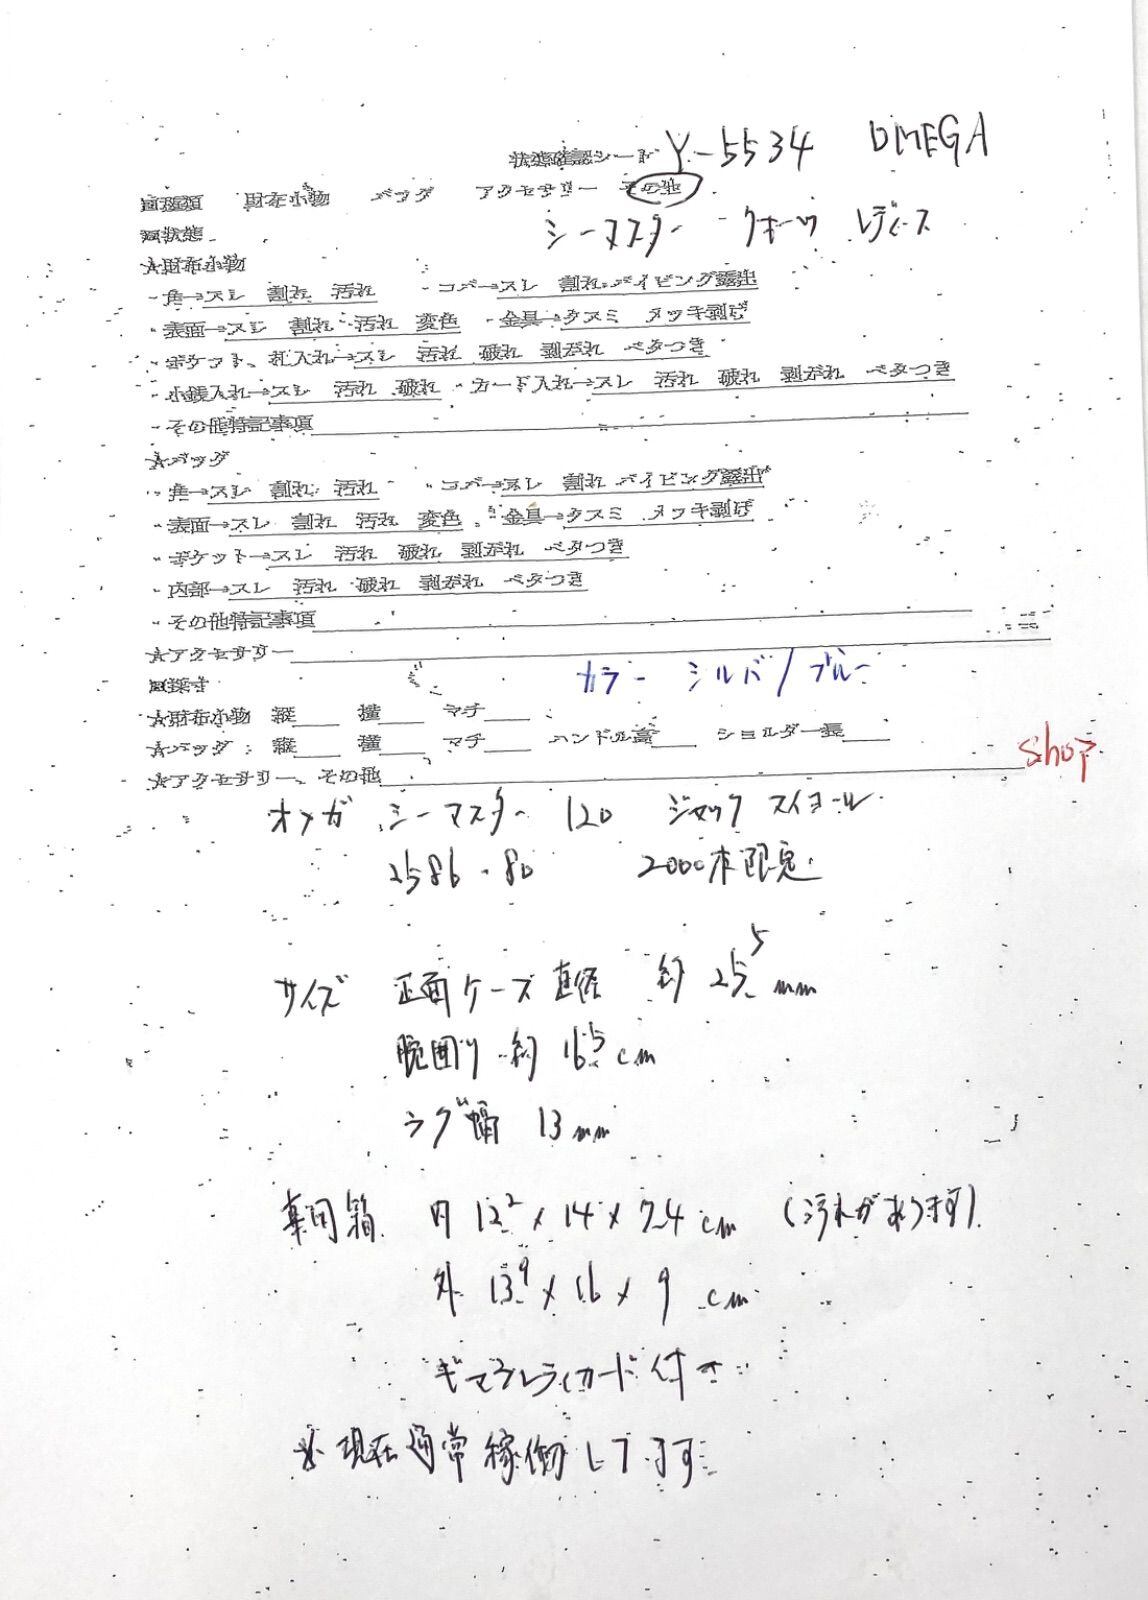 状態確認シート Y-5534 OMEGA
□種類 財布小物 バッグ アクセサリー その他
□状態 シーマスター クオーツ レディース
★財布小物
・角→スレ 割れ 汚れ ・コバ→スレ 割れ パイピング露出
・表面→スレ 割れ 汚れ 変色 ・金具→クスミ メッキ剥げ
・ポケット、札入れ→スレ 汚れ 破れ 剥がれ ベタつき
・小銭入れ→スレ 汚れ 破れ ・カード入れ→スレ 汚れ 破れ 剥がれ ベタつき
・その他特記事項
★バッグ
・角→スレ 割れ 汚れ ・コバ→スレ 割れ パイピング露出
・表面→スレ 割れ 汚れ 変色 ・金具→クスミ メッキ剥げ
・ポケット→スレ 汚れ 破れ 剥がれ ベタつき
・内部→スレ 汚れ 破れ 剥がれ ベタつき
・その他特記事項
★アクセサリー
□採寸 カラー シルバー/ブルー
★財布小物 縦 横 マチ
★バッグ 縦 横 マチ ハンドル高 ショルダー長
★アクセサリー、その他 shop
オメガ シーマスター 120 ジャック マイヨール
2586.80 2000本限定
サイズ 正面ケース直径 約25.5mm
腕囲り 約16.5cm
ラグ幅 13mm
専用箱 内 12.2×14×7.4cm (汚れがあります)
外 13.9×16×9cm
ギャランティカード付き
※現在通常稼働してます